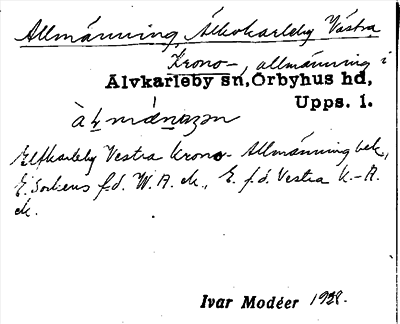 Allmänning, Älvkarleby Västra
Krono-, allmänning i
Älvkarleby sn, Örbyhus hd,
Upps. l.
Elfkarleby Vestra Krono- Allmänning bek,
E. Sockens f.d. W. A. ck., E. f.d. Vestra K.-A.
ck.
Ivar Modéer 1928.